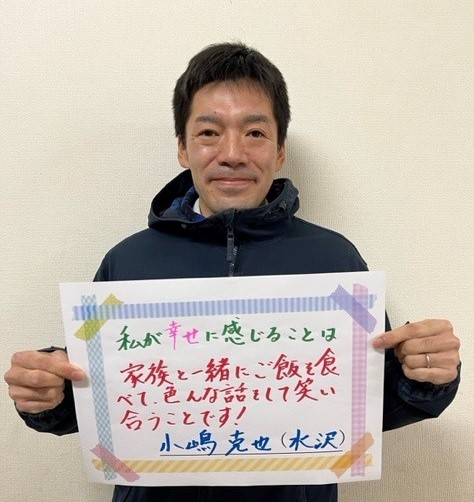 私が幸せに感じることは
家族と一緒にご飯を食
べて、色んな話をして笑い
合うことです!
小嶋克也(水沢)